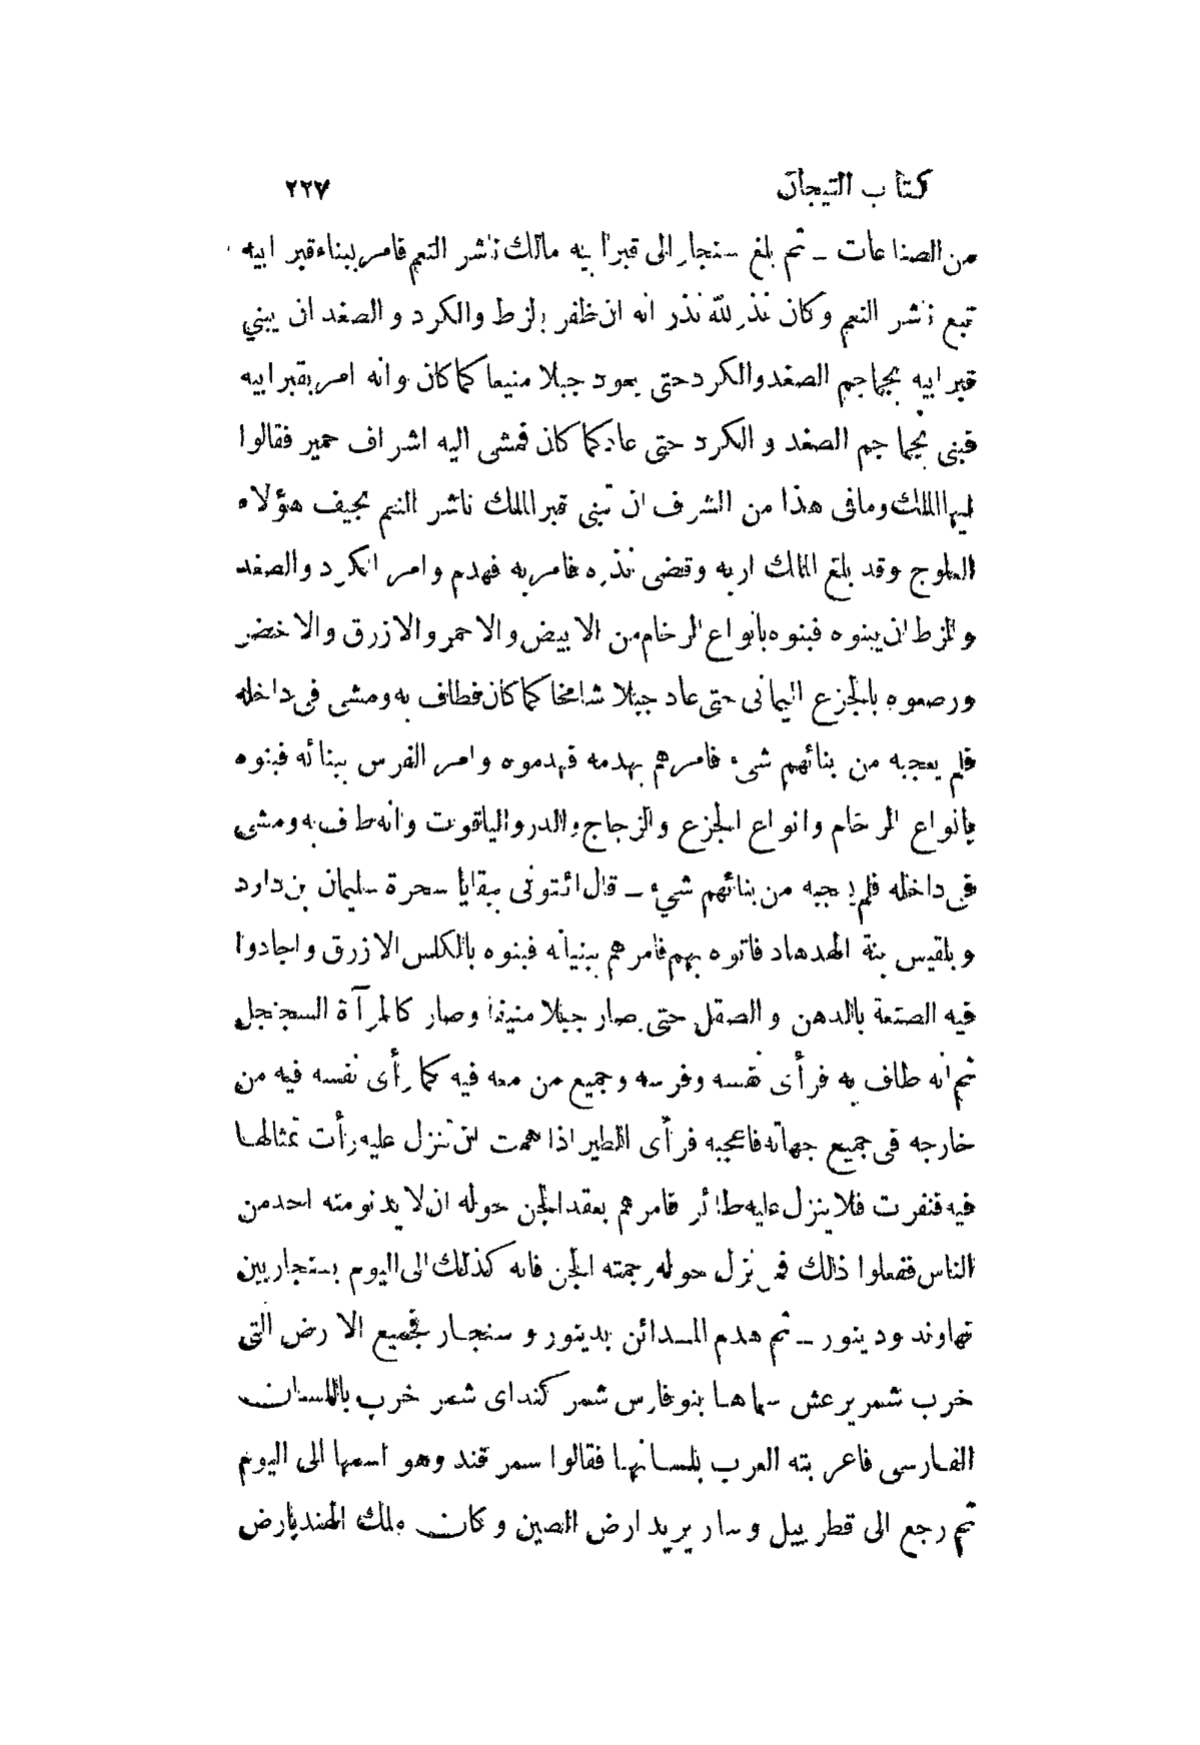 كتاب التيجان ٢٢٧
من الصناعات ــ ثم بلغ سنجار الى قبر ابيه مالك ناشر النعم فامر ببناء قبر ابيه
تبع ناشر النعم وكان نذر لله نذر انه ان ظفر بالزط والكرد والصغد ان يبني
قبر ابيه بجماجم الصغد والكرد حتى يعود جبلا منيعا كما كان وانه امر بقبر ابيه
فبنى بجماجم الصغد و الكرد حتى عاد كما كان فمشى اليه اشراف حمير فقالوا
ايها الملك وما فى هذا من الشرف ان تبنى قبر الملك ناشر النعم بجيف هؤلاء
العلوج وقد بلغ الملك اربه وقضى نذره فامر به فهدم وامر الكرد والصغد
والزط ان يبنوه فبنوه بأنواع الرخام من الابيض والاحمر والازرق والاخضر
ورصعوه بالجزع اليمانى حتى عاد جبلا شامخا كما كان فطاف به ومشى فى داخله
فلم يعجبه من بنائهم شىء فامرهم بهدمه فهدموه وامر الفرس ببنائه فبنوه
بأنواع الرخام وانواع الجزع والزجاج والدر والياقوت وانه طاف به ومشى
فى داخله فلم يعجبه من بنائهم شيء ــ قال ائتونى ببقايا سحرة سليمان بن دارد
وبلقيس بنة الهدهاد فاتوه بهم فامرهم ببنيانه فبنوه بالكلس الازرق واجادوا
فيه الصنعة بالدهن و الصقل حتى صار جبلا منيفا وصار كالمرآة السجنجل
ثم انه طاف به فرأى نفسه وفرسه وجميع من معه فيه كما رأى نفسه فيه من
خارجه فى جميع جهاته فاعجبه فرأى الطير اذا همت ان تنزل عليه رأت تمثالها
فيه فنفرت فلا ينزل عليه طائر فامرهم بعقد الجن حوله ان لا يدنو منه احد من
الناس ففعلوا ذلك فمن نزل حوله رجمته الجن فانه كذلك الى اليوم بسنجار بين
نهاوند ودينور ــ ثم هدم المدائن بدينور و سنجار فجميع الارض التى
خرب شمر يرعش سماها بنو فارس شمر كنداى شمر خرب باللسان
الفارسى فاعربته العرب بلسانها فقالوا سمر قند وهو اسمها الى اليوم
ثم رجع الى قطربيل وسار يريد ارض الصين وكان ملك الهند بأرض